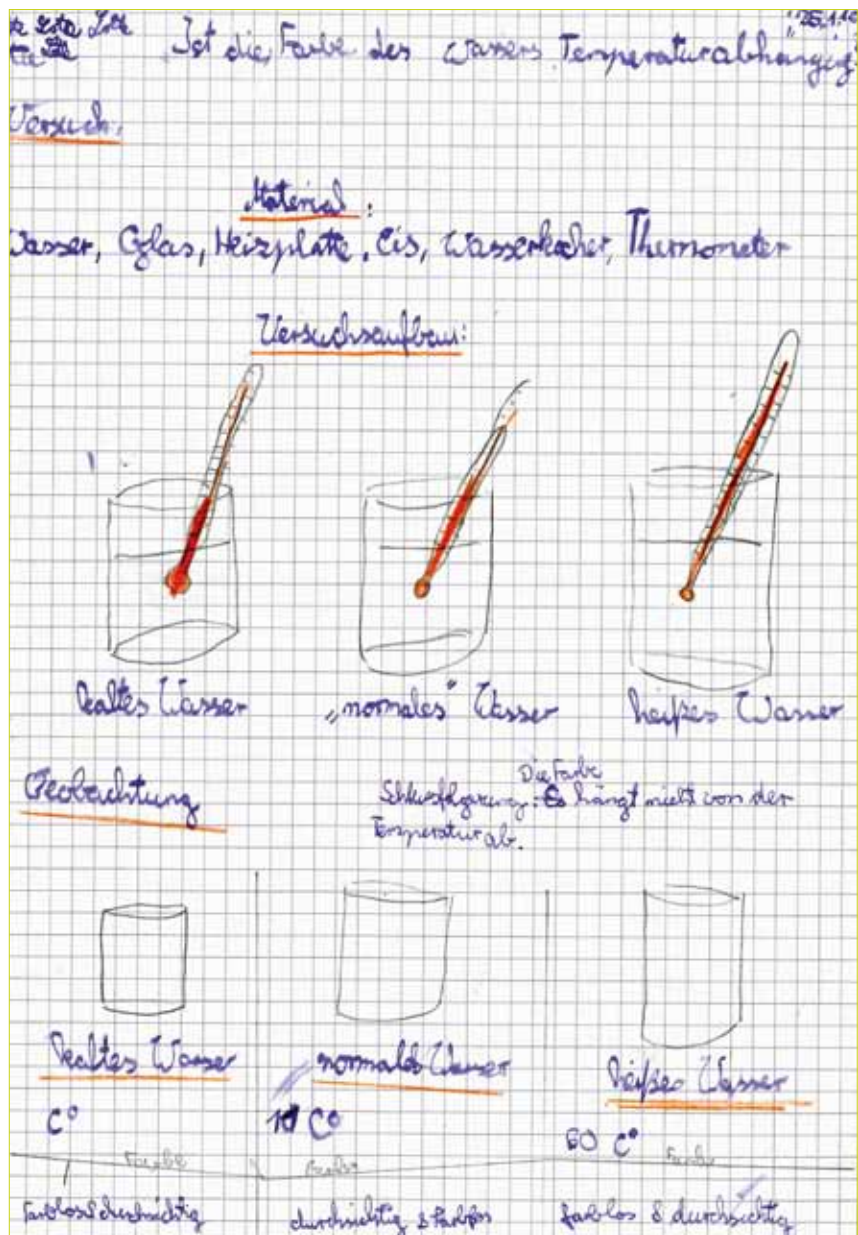 Ist die Farbe des Wassers Temperaturabhängig
Versuch:
Material:
Wasser, Glas, Heizplatte, Eis, Wasserkocher, Thermometer
Versuchsaufbau:
kaltes Wasser „normales" Wasser heißes Wasser
Beobachtung
Die Farbe
Schlussfolgerung: Es hängt nicht von der
Temperatur ab.
kaltes Wasser normales Wasser heißes Wasser
C° C° 60 C°
Farbe Farbe Farbe
farblos & durchsichtig durchsichtig & farblos farblos & durchsichtig